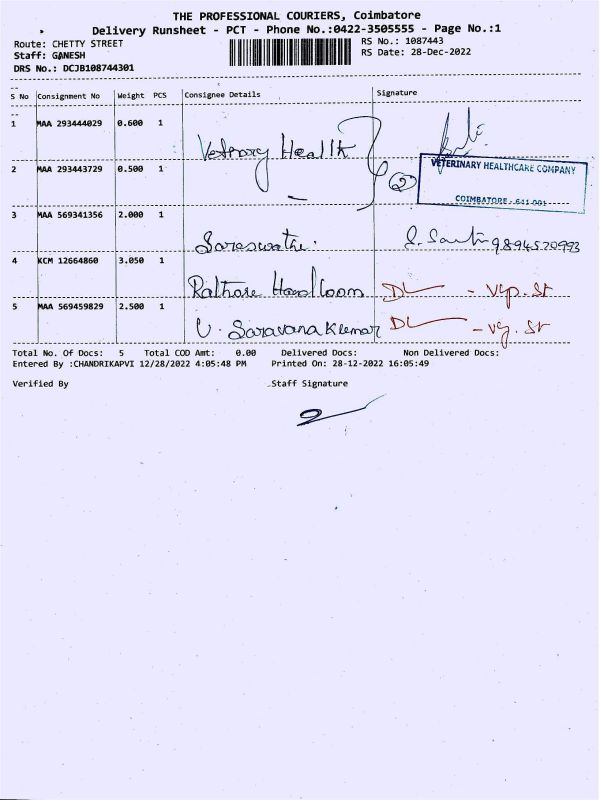 THE PROFESSIONAL COURIERS, Coimbatore
Delivery Runsheet - PCT - Phone No.:0422-3505555 - Page No.:1
Route: CHETTY STREET
RS No.: 1087443
Staff: GANESH
RS Date: 28-Dec-2022
DRS No.: DCJB108744301
S No Consignment No Weight PCS Consignee Details Signature
1 MAA 293444029 0.600 1
Health
2 MAA 293443729 0.500 1
2
VETERINARY HEALTHCARE COMPANY
COIMBATORE - 641 001
3 MAA 569341356 2.000 1
Saraswathi. S. 9894520993
4 KCM 12664860 3.050 1
Rathore Handloom DL - Vyp. St
5 MAA 569459829 2.500 1
V. Saravana Kumar DL - Vy. St
Total No. Of Docs: 5 Total COD Amt: 0.00 Delivered Docs: Non Delivered Docs:
Entered By :CHANDRIKAPVI 12/28/2022 4:05:48 PM Printed On: 28-12-2022 16:05:49
Verified By Staff Signature